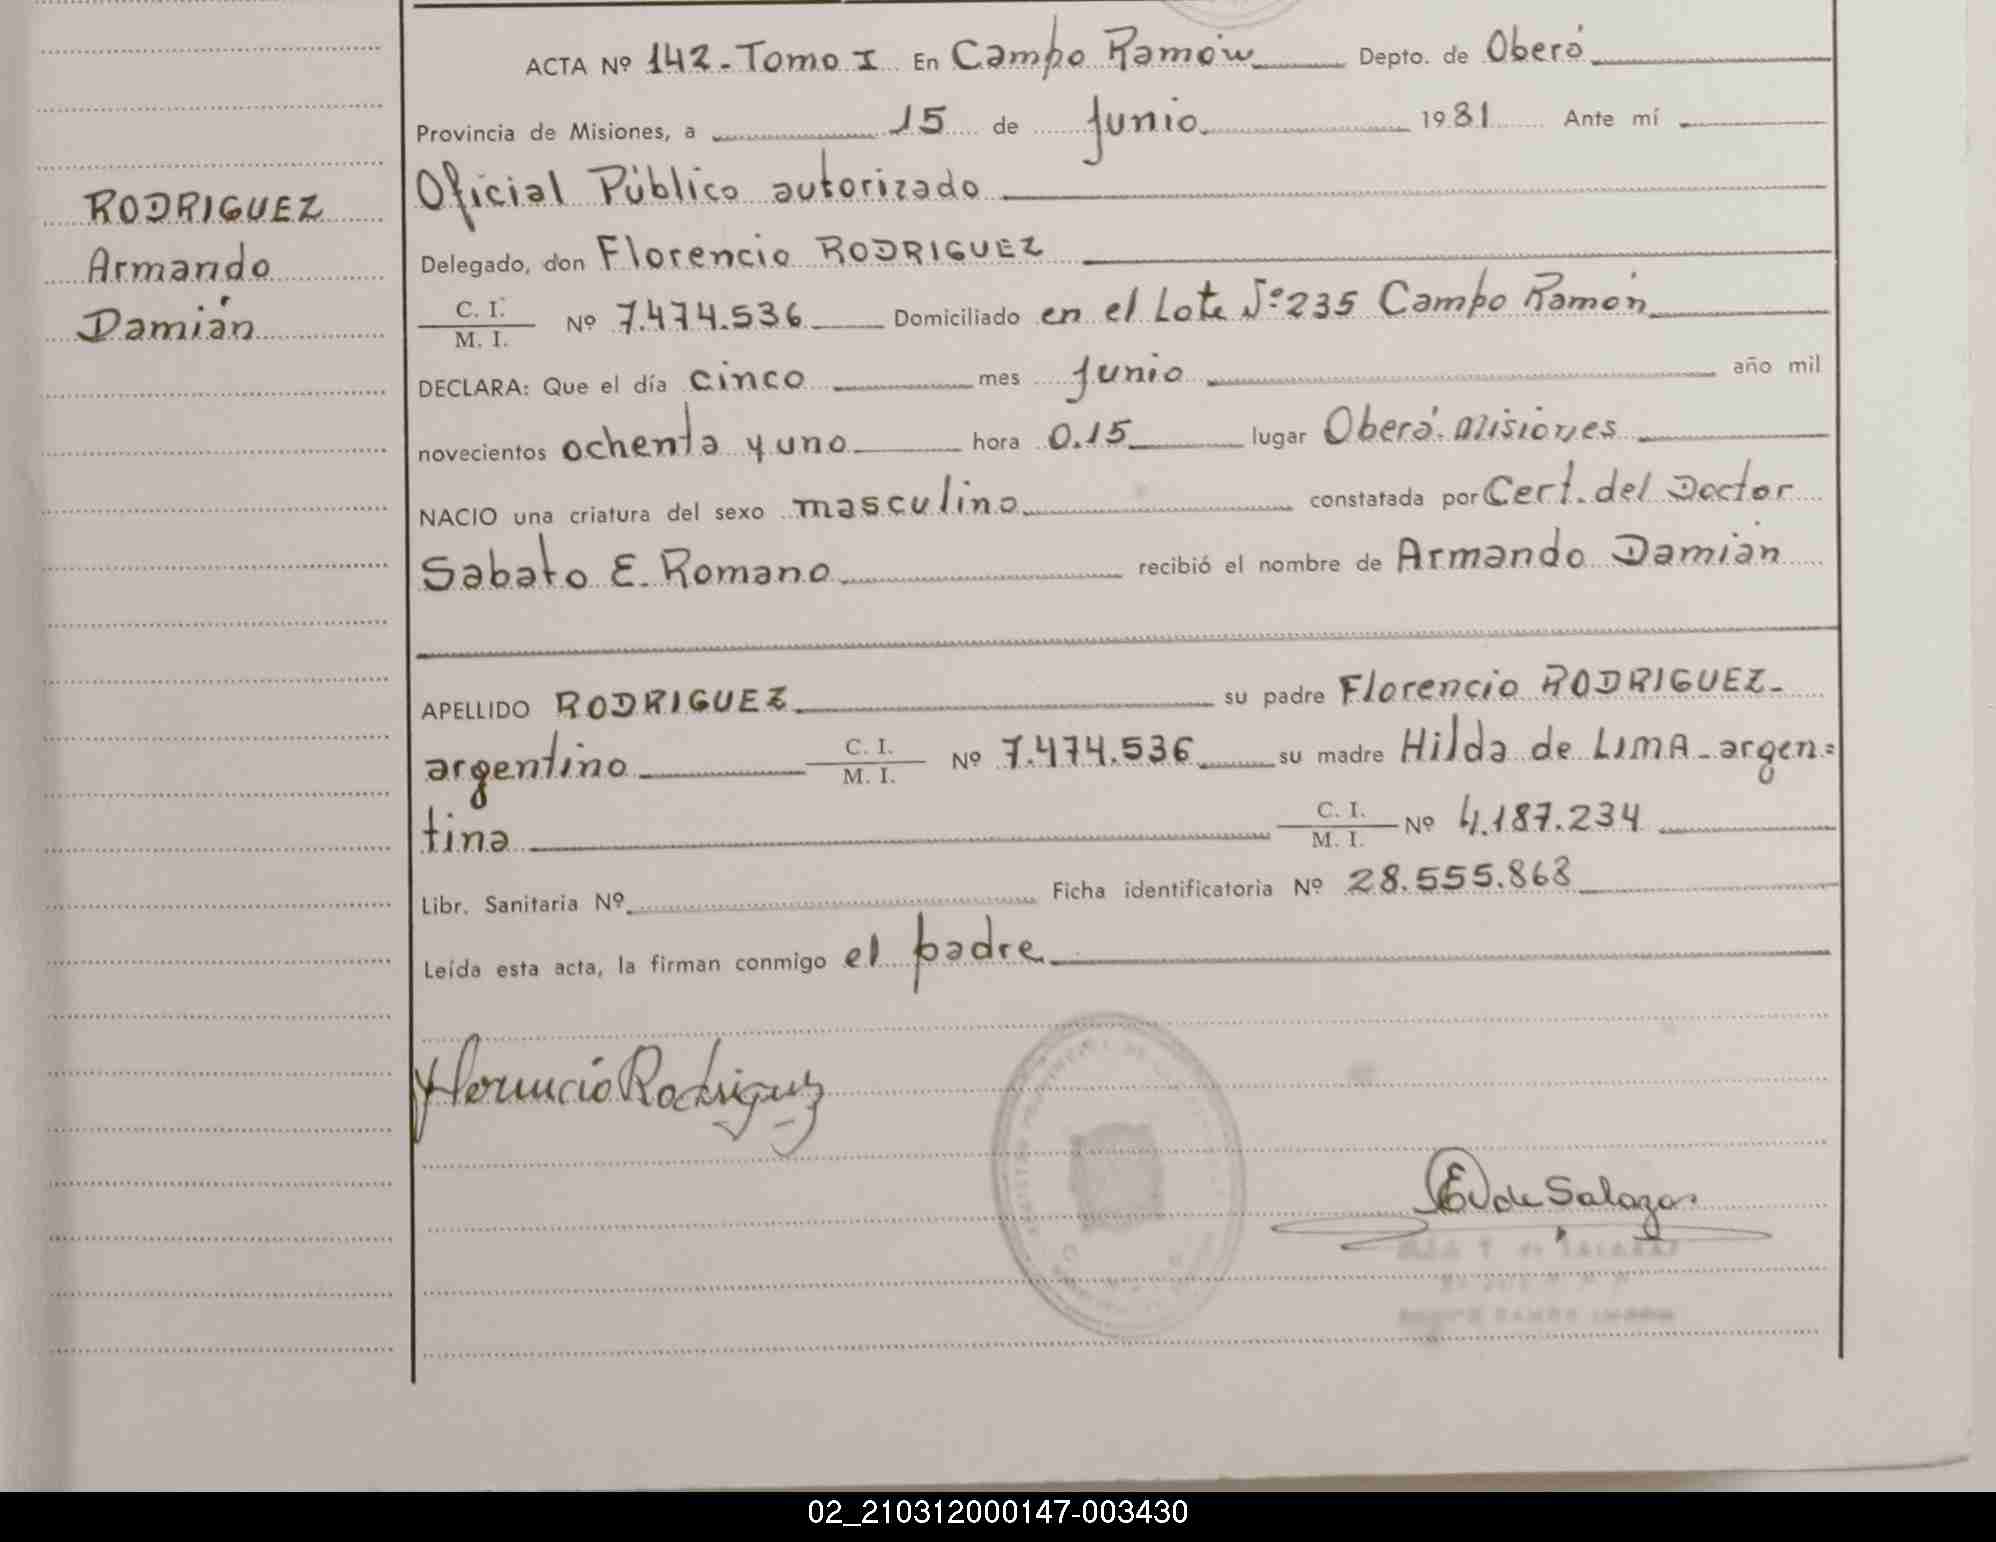 RODRIGUEZ
Armando
Damián
ACTA Nº 142-Tomo I En Campo Ramón Depto. de Oberá
Provincia de Misiones, a 15 de junio 1981 Ante mí
Oficial Público autorizado
Delegado, don Florencio RODRIGUEZ
C. I.
M. I. Nº 7.474.536 Domiciliado en el Lote Nº 235 Campo Ramón
DECLARA: Que el día cinco mes junio año mil
novecientos ochenta y uno hora 0.15 lugar Oberá-Misiones
NACIO una criatura del sexo masculino constatada por Cert. del Doctor
Sabato E. Romano recibió el nombre de Armando Damián
APELLIDO RODRIGUEZ su padre Florencio RODRIGUEZ-
argentino C. I. M. I. Nº 7.474.536 su madre Hilda de LIMA-argen=
tina C. I. M. I. Nº 4.187.234
Libr. Sanitaria Nº Ficha identificatoria Nº 28.555.868
Leída esta acta, la firman conmigo el padre
Florencio Rodriguez
E V de Salazar
02_210312000147-003430